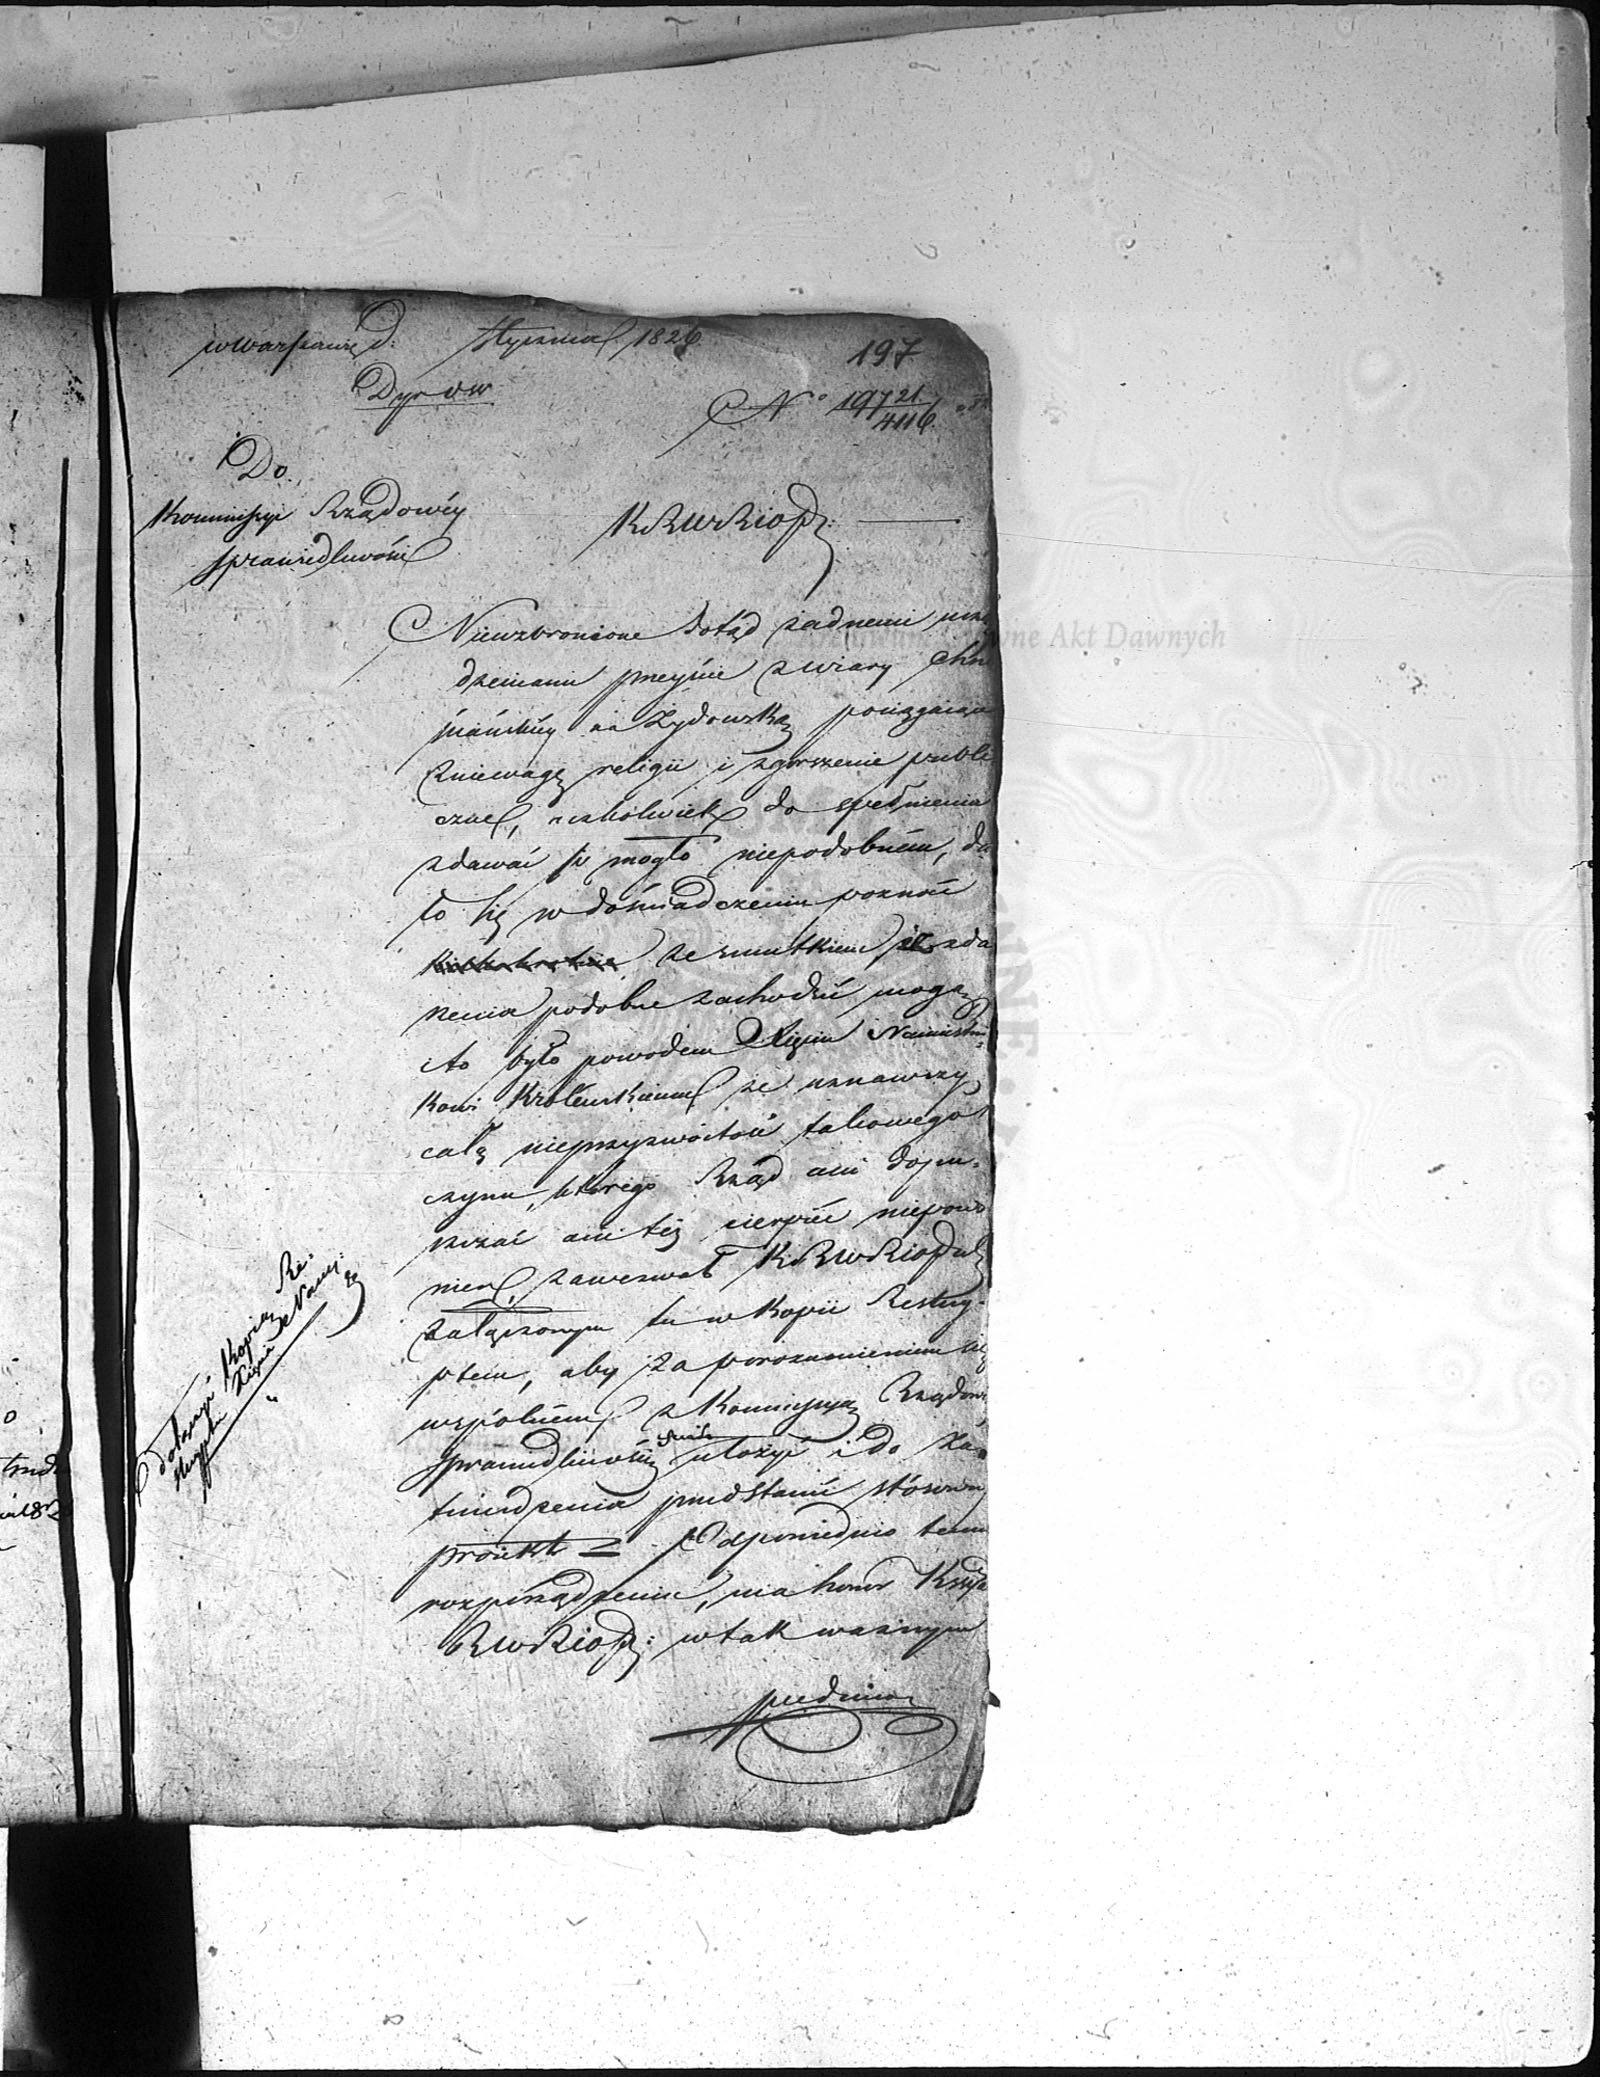 w Warszawie d: Stycznia 1826
197
Dyr ow
No 19721/4116
Do
Kommissyi Rządowéy
Sprawiedliwości
KRWRiOP:
Niewzbronione dotąd żadnemi urzą
dzeniami przeyście z wiary Chrze
ściańskiéy na Żydowską pociągaiące
zniewagę religii i zgorszenie publi
czne, aczkolwiek do spełnienia
zdawać się mogło niepodobném, da
ło się w doświadczeniu poznać
ze smutkiem że zda
rzenia podobne zachodzić mogą,
to było powodem Xięciu Namiestni=
kowi Królewskiemu że uznawszy
całą nieprzyzwoitość takowego
czynu, którego Rząd ani dopu=
szczać ani też cierpieć niepowi
nien, zawezwał KRWRiOP
załączonym tu w Kopii Reskry=
ptem, aby za porozumieniem się
wspólném z Kommissyą Rządową
Sprawiedliwości ułożyć i do za=
twierdzenia przedstawić stósowny
proiekt = Odpowiednio temu
rozporządzeniu, ma honor Kssya
RWRiOP: w tak ważnym
przedmio
dołączyć Kopią Re:
skryptu Xięcia Namies:
Archiwum Główne Akt Dawnych